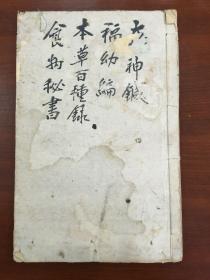 六神鍼
福幼編
本草百種錄
食物秘書